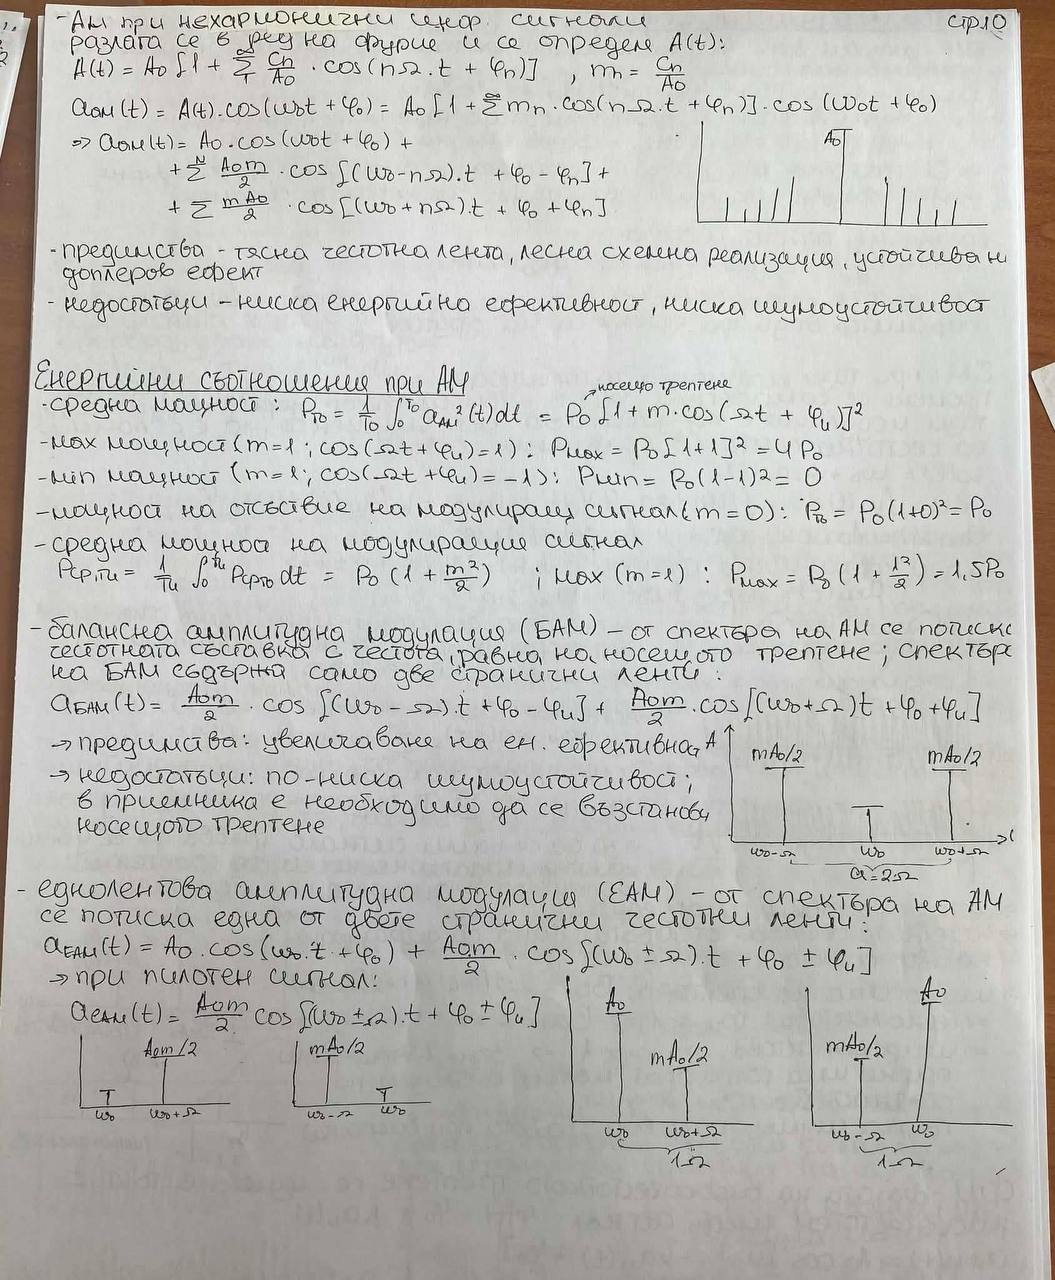 - АМ при нехармонични инфор. сигнали стр.10
разлага се в ред на фурие и се определя A(t):
A(t) = A₀ [1 + Σ Cn/A₀ · cos(nΩ.t + φn)] , mn = Cn/A₀
aам(t) = A(t).cos(ω₀t + φ₀) = A₀ [1 + Σ mn · cos(nΩ.t + φn)] . cos(ω₀t + φ₀)
=> aам(t) = A₀.cos(ω₀t + φ₀) +
+ Σ A₀m/2 · cos[(ω₀-nΩ).t + φ₀ - φn] +
+ Σ mA₀/2 · cos[(ω₀+nΩ).t + φ₀ + φn]
A₀
- предимства - тясна честотна лента, лесна схемна реализация, устойчива н
доплеров ефект
- недостатъци - ниска енергийна ефективност, ниска шумоустойчивост
Енергийни съотношения при АМ
носещо трептене
- средна мощност: Pт₀ = 1/T₀ ∫₀ᵀ⁰ aам²(t)dt = P₀ [1 + m.cos(Ωt + φи)]²
- max мощност (m=1; cos(Ωt+φи)=1): Pmax = P₀[1+1]² = 4P₀
- min мощност (m=1; cos(Ωt+φи)=-1): Pmin = P₀(1-1)² = 0
- мощност на отсъствие на модулиращ сигнал (m=0): Pт₀ = P₀(1+0)² = P₀
- средна мощност на модулиращия сигнал
Pср,Tи = 1/Tи ∫₀ᵀᵘ PсрT₀ dt = P₀ (1 + m²/2) ; max (m=1) : Pmax = P₀(1 + 1²/2) = 1,5P₀
- балансна амплитудна модулация (БАМ) - от спектъра на АМ се потиска
честотната съставка с честота, равна на носещото трептене; спектъра
на БАМ съдържа само две странични ленти:
aБАМ(t) = A₀m/2 · cos[(ω₀ - Ω).t + φ₀ - φи] + A₀m/2 · cos[(ω₀+Ω)t + φ₀ + φи]
→ предимства: увеличаване на ен. ефективност
→ недостатъци: по-ниска шумоустойчивост;
в приемника е необходимо да се възстанови
носещото трептене
A
mA₀/2 mA₀/2
ω₀-Ω ω₀ ω₀+Ω
=2Ω
- еднолентова амплитудна модулация (ЕАМ) - от спектъра на АМ
се потиска една от двете странични честотни ленти:
aЕАМ(t) = A₀.cos(ω₀.t + φ₀) + A₀m/2 · cos[(ω₀ ± Ω).t + φ₀ ± φи]
→ при пилотен сигнал:
aЕАМ(t) = A₀m/2 cos[(ω₀ ± Ω).t + φ₀ ± φи]
A₀m/2
ω₀ ω₀+Ω
mA₀/2
ω₀-Ω ω₀
A₀
mA₀/2
ω₀ ω₀+Ω
1Ω
A₀
mA₀/2
ω₀-Ω ω₀
1Ω